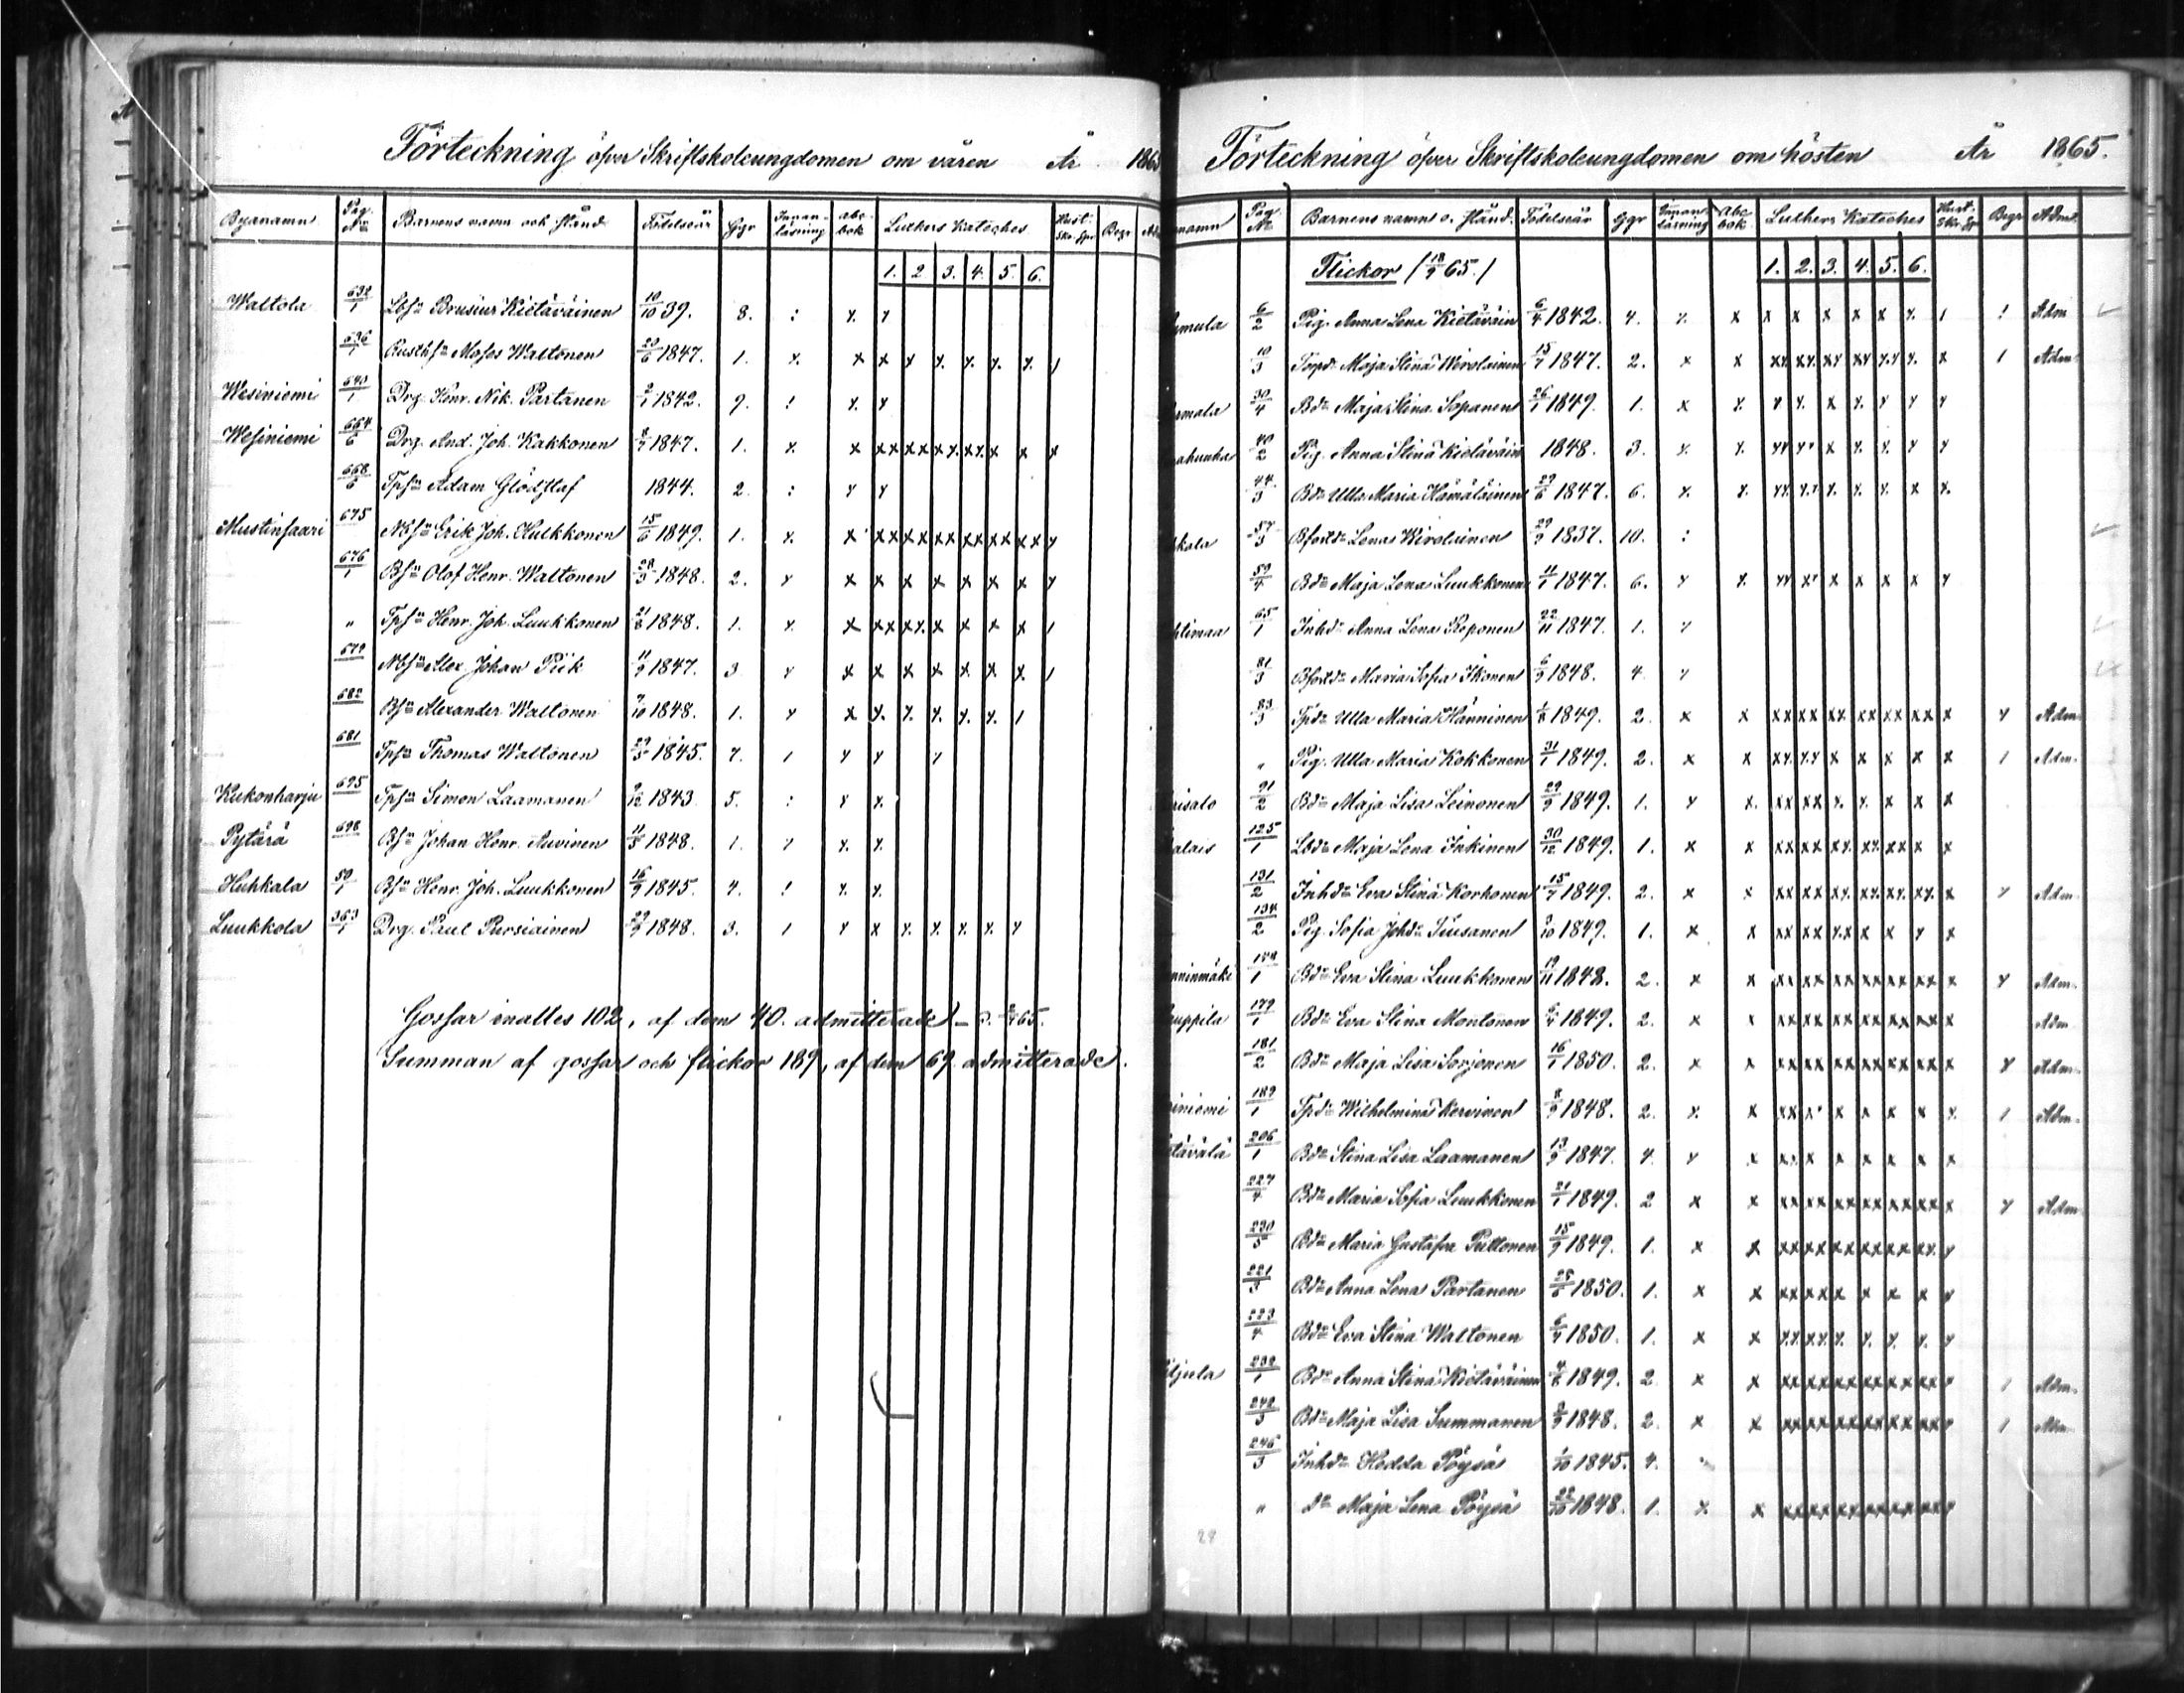 Förteckning öfver Skriftskoleungdomen om våren År 186
Byanamn Pag. No Barnens namn och stånd Födelseår Ggr Innanläsning abc-bok Luthers Kateches Hust. Skr. Sp. Begr.
1. 2 3. 4. 5. 6.
Waltola 632/1 Lbsn Brusius Kietäväinen 10/10 39. 8. : x. x
636/1 Rusthsn Moses Waltonen 20/6 1847. 1. x. x x x x. x. x. x. 1
Wesiniemi 640/1 Drg. Henr. Nik. Partanen 2/1 1842. 9. ! x. x
Wesiniemi 664/6 Drg. And. Joh. Kakkonen 8/7 1847. 1. x. x xx xx xx. xx. x x x
668/6 Tpsn Adam Glödstaf 1844. 2. : x x
Mustinsaari 675 Nbsn Erik Joh. Hulkkonen 15/6 1849. 1. x. x xx xx xx xx xx xx x
676/1 Bsn Olof Henr. Waltonen 28/3 1848. 2. x x x x x x x x x
" Tpsn Henr. Joh. Luukkonen 21/8 1848. 1. x. x xx xx. x x x x 1
679 Nbsn Alex Johan Piik 11/9 1847. 3 x x x x x x x x. 1
682 Bsn Alexander Waltonen 7/10 1848. 1. x x x. x. x. x. x. 1
681 Tpsn Thomas Waltonen 29/5 1845. 7. 1 x x x
Kukonharju 695 Tpsn Simon Laamanen 9/12 1843 5. : x x.
Pytärä 698 Bsn Johan Henr. Auvinen 11/5 1848. 1. x x. x.
Huhkala 59/1 Bsn Henr. Joh. Luukkonen 16/9 1845. 4. ! x. x.
Luukkola 363/1 Drg. Paul Pursiainen 29/9 1848. 3. 1 x x x. x. x. x. x
Gossar inalles 102, af dem 40. admitterade
Summan af gossar och flickor 189, af dem 69. admitterade.
Förteckning öfver Skriftskoleungdomen om hösten År 1865.
namn Pag. No Barnens namn o. stånd. Födelseår Ggr Innanläsning Abc bok Luthers Kateches Hust. Skr. Sp. Begr Adm.
Flickor (18/9 65.) 1. 2. 3. 4. 5. 6.
6/2 Pig. Anna Lena Kietäväin 6/4 1842. 4. x. x x x x x x x. 1 ! Adm
10/3 Torpd. Maja Stina Wirolainen 15/7 1847. 2. x x xx. xx. xx xx x.x x. x 1 Adm.
30/4 Bdr Maja Stina Sopanen 26/1 1849. 1. x x. x x. x x. x x x
40/2 Pig. Anna Stina Kietäväin 1848. 3. x. x. xx x x x. x. x x
44/3 Bdr Ulla Maria Hämäläinen 29/6 1847. 6. x. x. xx. x.x x. x. x. x x.
hkala 57/3 Bfostdr Lena Wirolainen 29/9 1837. 10. :
59/4 Bdr Maja Lena Luukkonen 11/1 1847. 6. x x. xx x x x x x x
htimaa 65/1 Inhdr Anna Lena Reponen 22/11 1847. 1. x
81/3 Bfostdr Maria Sofia Ikonen 6/9 1848. 4. x
83/3 Tpdr Ulla Maria Hänninen 1/8 1849. 2. x x xx xx xx. xx xx xx x x Adm.
" Pig. Ulla Maria Kokkonen 31/1 1849. 2. x x xx. x.x x x x x x 1 Adm.
risalo 91/2 Bdr Maja Lisa Leinonen 29/9 1849. 1. x x. xx xx x. x. x x x
alais 125/1 Lbdr Maja Lena Inkinen 30/12 1849. 1. x x xx xx xx. xx. xx x x
131/2 Inhdr Eva Stina Korhonen 15/7 1849. 2. x x xx xx xx. xx. xx xx. x x Adm.
134/2 Pig. Sofia Johdr Tiusanen 9/10 1849. 1. x x xx xx xx x x x x
nninmäki 1 Bdr Eva Stina Luukkonen 19/11 1848. 2. x x xx xx xx xx xx xx x x Adm.
uppila 179/1 Bdr Eva Stina Montonen 9/4 1849. 2. x x xx xx xx xx xx xx x Adm
181/2 Bdr Maja Lisa Sorjonen 16/1 1850. 2. x x xx xx xx xx xx xx x x Adm.
iniemi 189/1 Tpdr Wilhelmina Kervinen 8/9 1848. 2. x. x xx x x x x x x. 1 Adm.
tävälä 206/1 Bdr Stina Lisa Laamanen 13/9 1847. 4. x x xx x x x x x x
227/4 Bdr Maria Sofia Luukkonen 21/1 1849. 2 x x xx xx xx xx xx xx x x Adm
230/5 Bdr Maria Gustafva Puttonen 15/9 1849. 1. x x xx xx xx xx xx xx. x
221/3 Bdr Anna Lena Partanen 25/6 1850. 1. x x xx xx x x x x x
223/4 Bdr Eva Stina Waltonen 6/4 1850. 1. x x x.x. xx. x. x. x. x. x
ljula 232/1 Bdr Anna Stina Kietäväinen 4/8 1849. 2. x x xx xx xx xx xx xx x 1 Adm.
242/3 Bdr Maja Lisa Summanen 2/9 1848. 2. x x xx xx xx xx xx xx x 1 Adm
246/3 Inhdr Hedda Pöysä 1/10 1845. 4.
" dr Maja Lena Pöysä 22/10 1848. 1. x x xx xx xx xx xx xx x